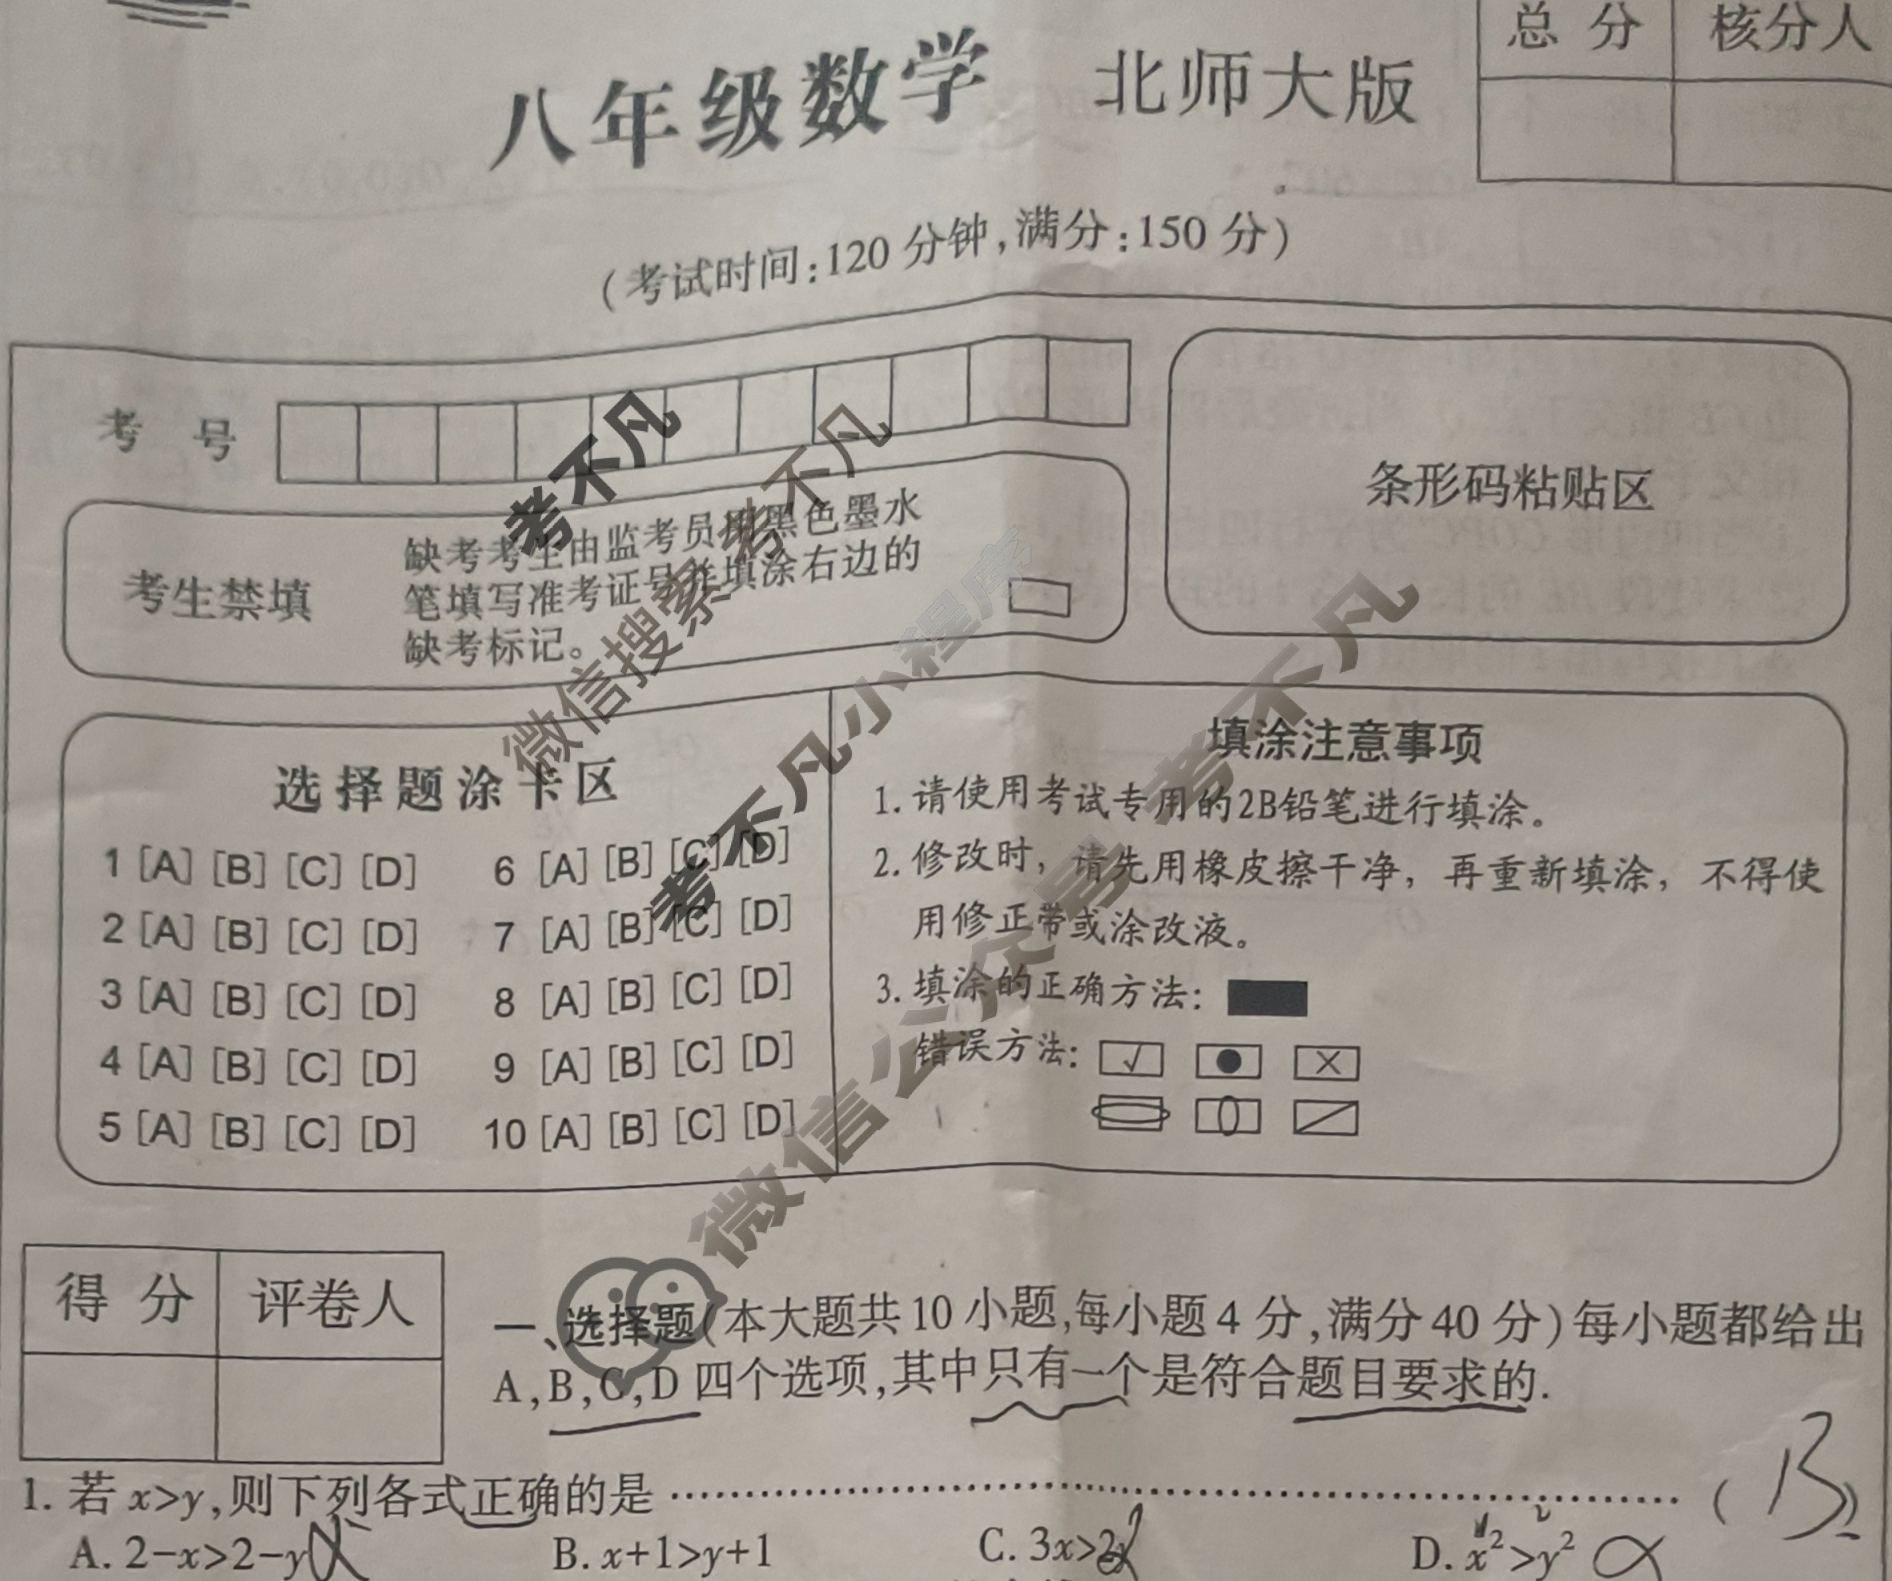 八年级数学 北师大版
总分 核分人
(考试时间:120分钟,满分:150分)
考号
条形码粘贴区
考生禁填
缺考考生由监考员用黑色墨水
笔填写准考证号并填涂右边的
缺考标记。
选择题涂卡区
1 [A] [B] [C] [D] 6 [A] [B] [C] [D]
2 [A] [B] [C] [D] 7 [A] [B] [C] [D]
3 [A] [B] [C] [D] 8 [A] [B] [C] [D]
4 [A] [B] [C] [D] 9 [A] [B] [C] [D]
5 [A] [B] [C] [D] 10 [A] [B] [C] [D]
填涂注意事项
1. 请使用考试专用的2B铅笔进行填涂。
2. 修改时，请先用橡皮擦干净，再重新填涂，不得使
用修正带或涂改液。
3. 填涂的正确方法：
错误方法：
考不凡
微信搜索 考不凡
考不凡小程序
微信公众号 考不凡
得分 评卷人
一、选择题(本大题共10小题,每小题4分,满分40分)每小题都给出
A,B,C,D四个选项,其中只有一个是符合题目要求的.
1. 若x>y,则下列各式正确的是……………………( B )
A. 2-x>2-y B. x+1>y+1 C. 3x> D. x²>y²